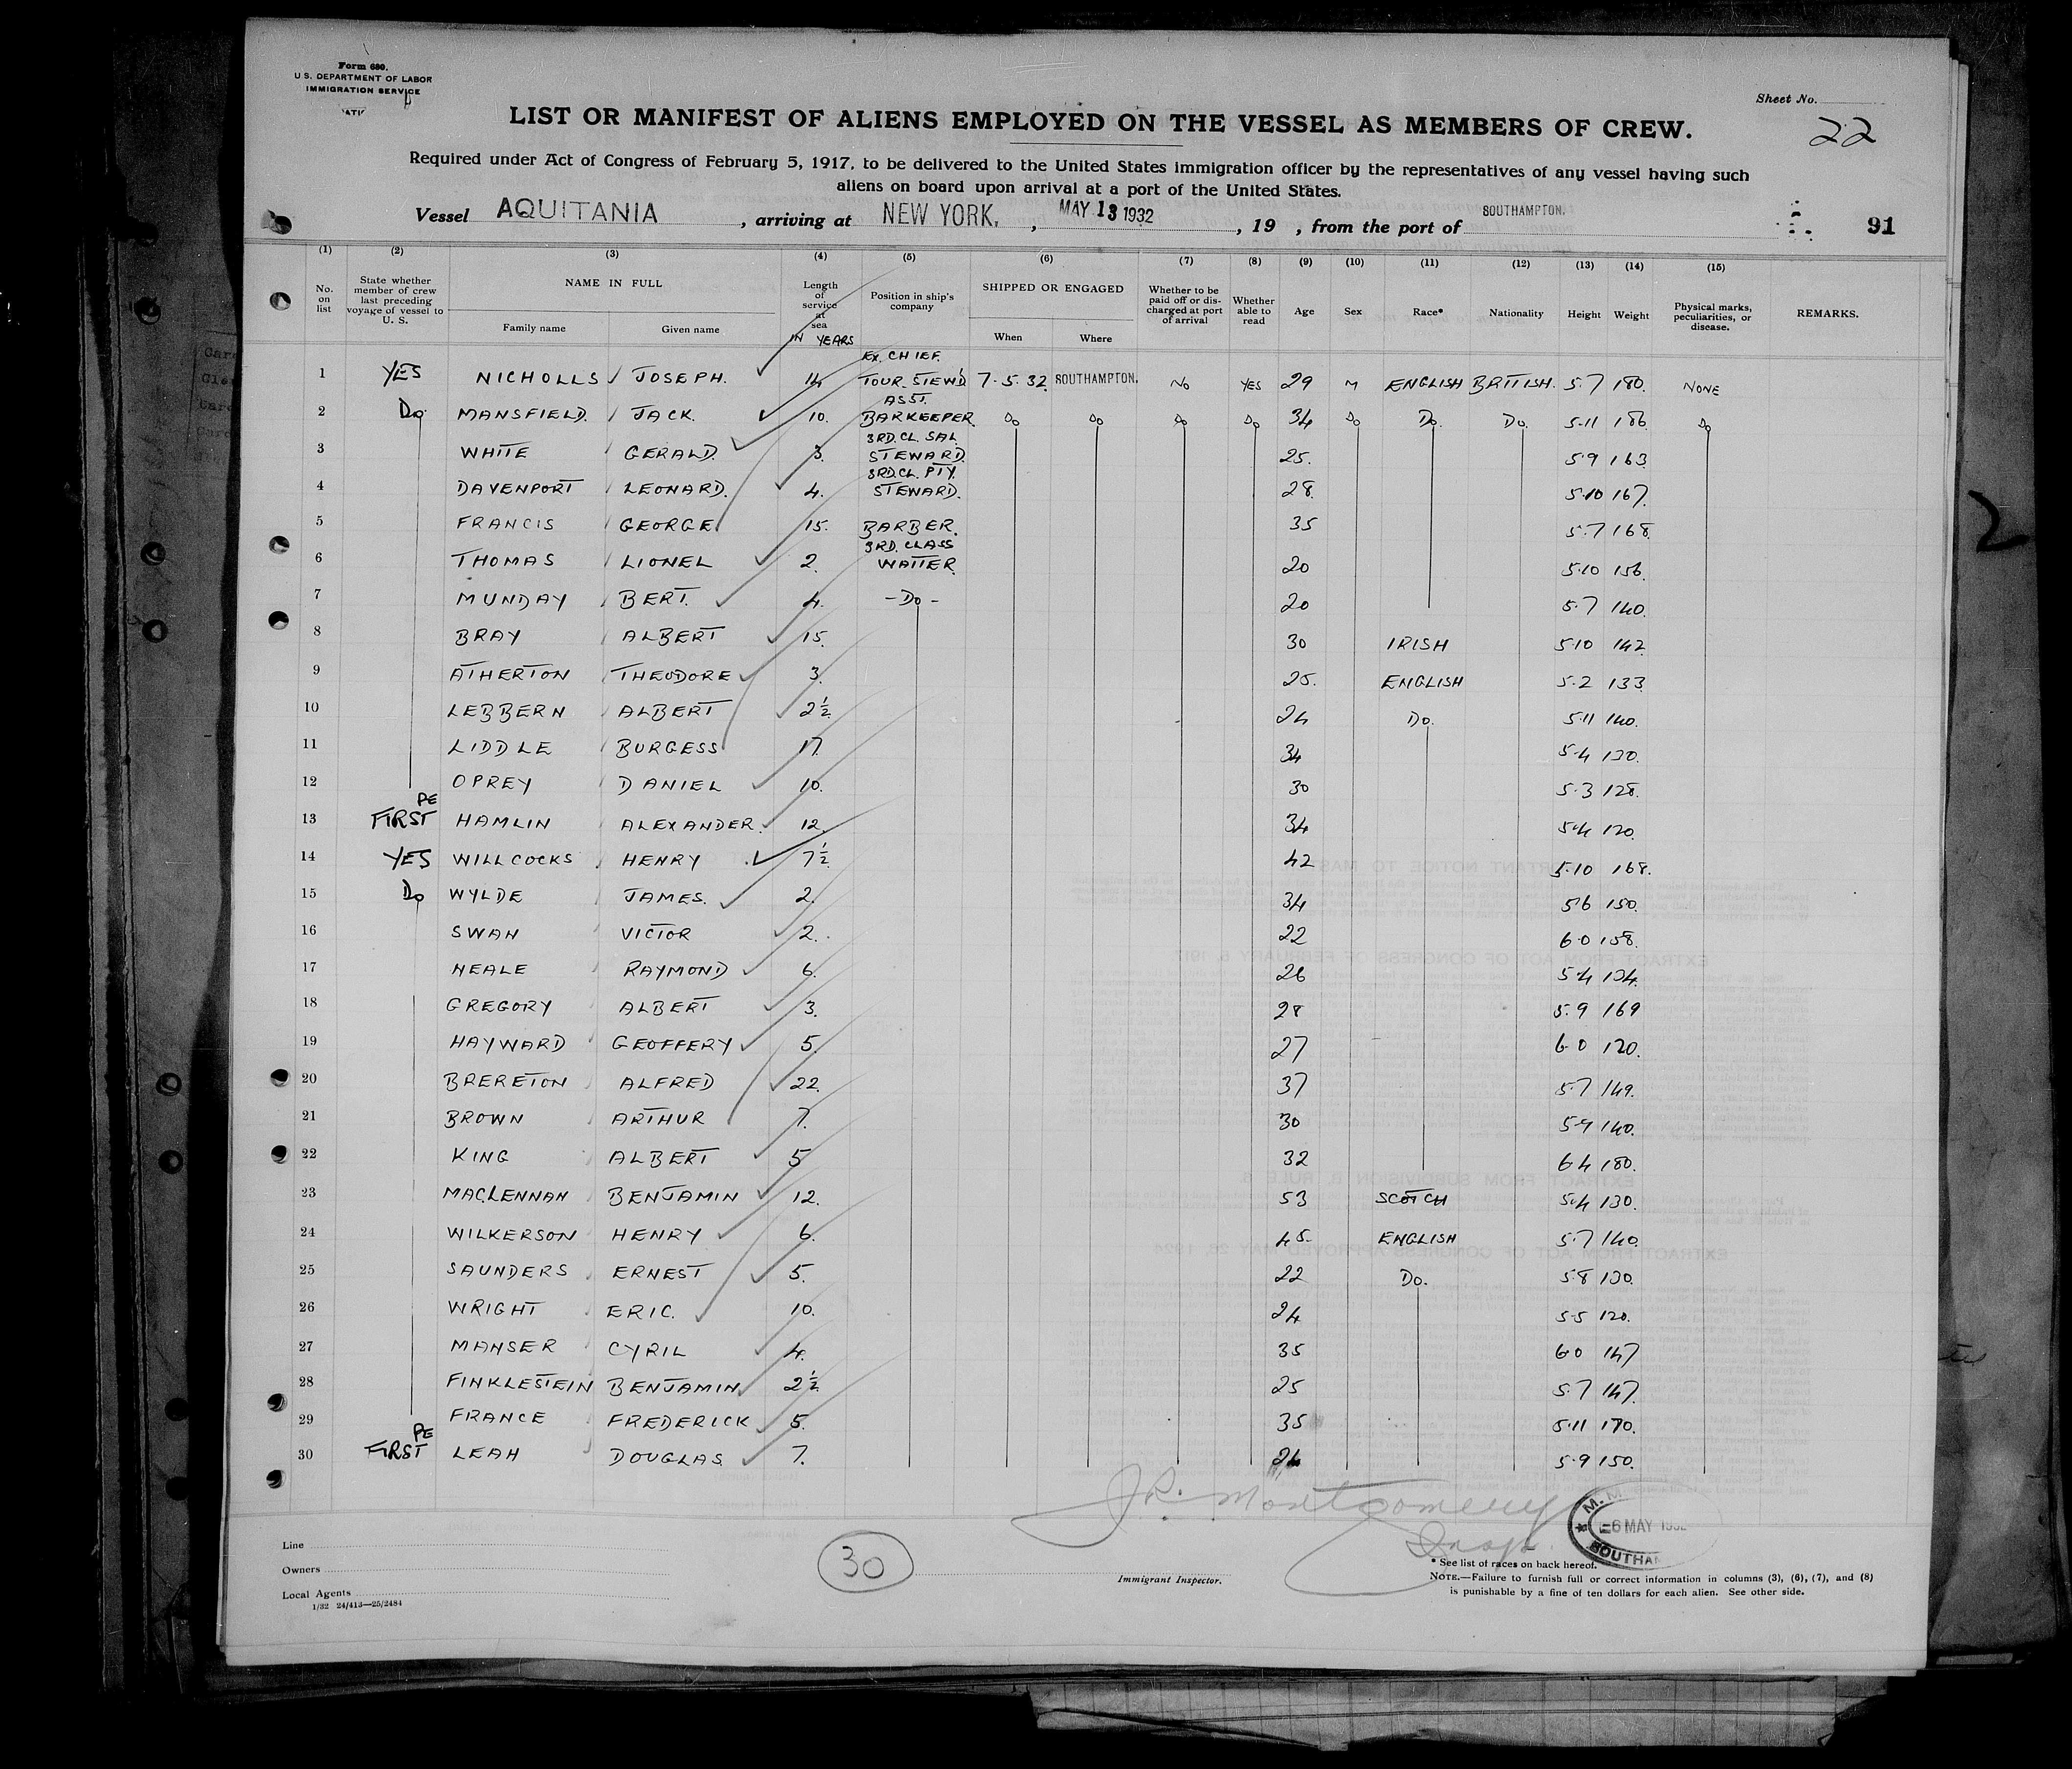 Form 680.
U.S. DEPARTMENT OF LABOR
IMMIGRATION SERVICE
Sheet No.
22
LIST OR MANIFEST OF ALIENS EMPLOYED ON THE VESSEL AS MEMBERS OF CREW.
Required under Act of Congress of February 5, 1917, to be delivered to the United States immigration officer by the representatives of any vessel having such
aliens on board upon arrival at a port of the United States.
Vessel AQUITANIA, arriving at NEW YORK, MAY 13 1932, 19 , from the port of SOUTHAMPTON. 91
(1) (2) (3) (4) (5) (6) (7) (8) (9) (10) (11) (12) (13) (14) (15)
No. on list State whether member of crew last preceding voyage of vessel to U. S. NAME IN FULL Family name Given name Length of service at sea IN YEARS Position in ship's company SHIPPED OR ENGAGED When Where Whether to be paid off or discharged at port of arrival Whether able to read Age Sex Race* Nationality Height Weight Physical marks, peculiarities, or disease. REMARKS.
1 YES NICHOLLS JOSEPH. 14 EX. CHIEF. TOUR. STEW'D 7.5.32. SOUTHAMPTON. NO YES 29 M ENGLISH BRITISH. 5.7 180. NONE
2 Do MANSFIELD. JACK. 10. ASST. BARKEEPER. Do Do Do Do 34 Do Do. Do. 5.11 186. Do
3 WHITE GERALD. 3. 3RD. CL. SAL. STEWARD. 25. 5.9 163.
4 DAVENPORT LEONARD. 4. 3RD. CL. PTY. STEWARD. 28. 5.10 167.
5 FRANCIS GEORGE 15. BARBER. 35 5.7 168.
6 THOMAS LIONEL 2. 3RD. CLASS WAITER. 20 5.10 156.
7 MUNDAY BERT. 4. - Do - 20 5.7 140.
8 BRAY ALBERT 15. 30 IRISH 5.10 142.
9 ATHERTON THEODORE 3. 25. ENGLISH 5.2 133.
10 LEBBERN ALBERT 2½ 24 Do. 5.11 140.
11 LIDDLE BURGESS 17. 34 5.4 130.
12 OPREY DANIEL 10. 30 5.3 128.
13 PE FIRST HAMLIN ALEXANDER. 12. 34 5.4 120.
14 YES WILLCOCKS HENRY 7½ 42 5.10 168.
15 Do WYLDE JAMES. 2. 34 5.6 150.
16 SWAN VICTOR 2. 22 6.0 158.
17 HEALE RAYMOND 6. 26 5.4 134.
18 GREGORY ALBERT 3. 28 5.9 169
19 HAYWARD GEOFFERY 5. 27 6.0 120.
20 BRERETON ALFRED 22. 37 5.7 149.
21 BROWN ARTHUR 7. 30 5.9 140.
22 KING ALBERT 5 32 6.4 180.
23 MACLENNAN BENJAMIN 12. 53 SCOTCH 5.4 130.
24 WILKERSON HENRY 6. 45. ENGLISH 5.7 140.
25 SAUNDERS ERNEST 5. 22 Do. 5.8 130.
26 WRIGHT ERIC. 10. 24 5.5 120.
27 MANSER CYRIL 4. 35 6.0 147
28 FINKLESTEIN BENJAMIN 2½ 25 5.7 147.
29 FRANCE FREDERICK 5. 35 5.11 170.
30 PE FIRST LEAH DOUGLAS 7. 24 5.9 150.
J.R. Montgomery
Insp.
6 MAY 1932
Line
Owners
Local Agents
1/32 24/413—25/2484
30
Immigrant Inspector.
* See list of races on back hereof.
NOTE.—Failure to furnish full or correct information in columns (3), (6), (7), and (8)
is punishable by a fine of ten dollars for each alien. See other side.
2